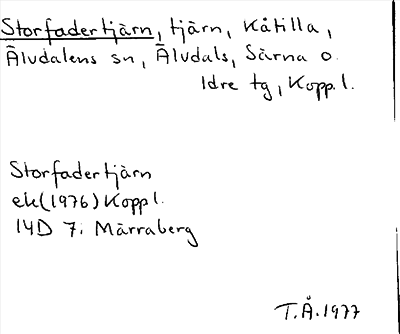 Storfadertjärn, tjärn, Kåtilla,
Älvdalens sn, Älvdals, Särna o.
Idre tg, Kopp.l.
Storfadertjärn
ek(1976) Koppl.
14D 7i Märraberg
T.Å.1977